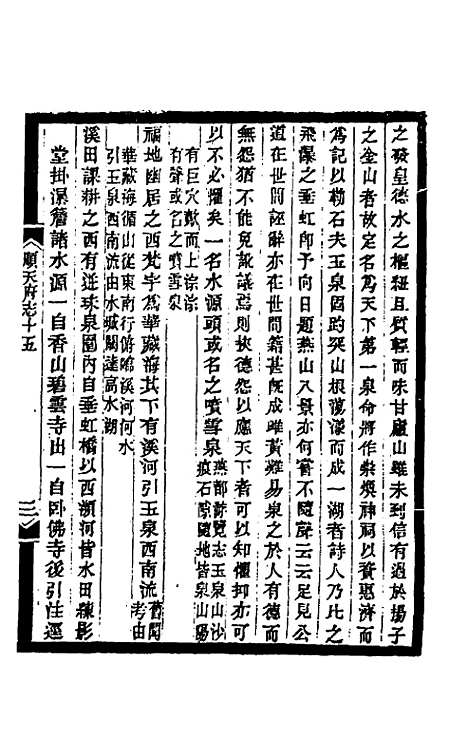 之發皇德水之樞紐且質輕而味甘廬山雖未到信有過於揚子
之金山者故定名爲天下第一泉命將作崇煥神祠以資惠濟而
爲記以勒石夫玉泉固趵突山根蕩漾而成一湖者詩人乃比之
飛瀑之垂虹卽予向日題燕山八景亦何嘗不隨聲云云足見公
道在世間誣辭亦在世間籍甚旣成雌黃難易泉之於人有德而
無怨猶不能免訛議焉則挾德怨以應天下者可以知懼抑亦可
以不必懼矣一名水源頭或名之噴雪泉燕都游覽志玉泉山沙
痕石隙隨地皆泉山陽
有巨穴獻而上淙淙
有聲或名之噴雪泉
福地幽居之西梵宇爲華藏海其下有溪河引玉泉西南流舊聞
考由
華藏海循山從東南行俯臨溪河河水
引玉泉西南流由水城關達高水湖
溪田課耕之西有迸珠泉園內自垂虹橋以西瀕河皆水田練影
堂掛瀑簷諸水源一自香山碧雲寺出一自卧佛寺後引注逕
順天府志十五